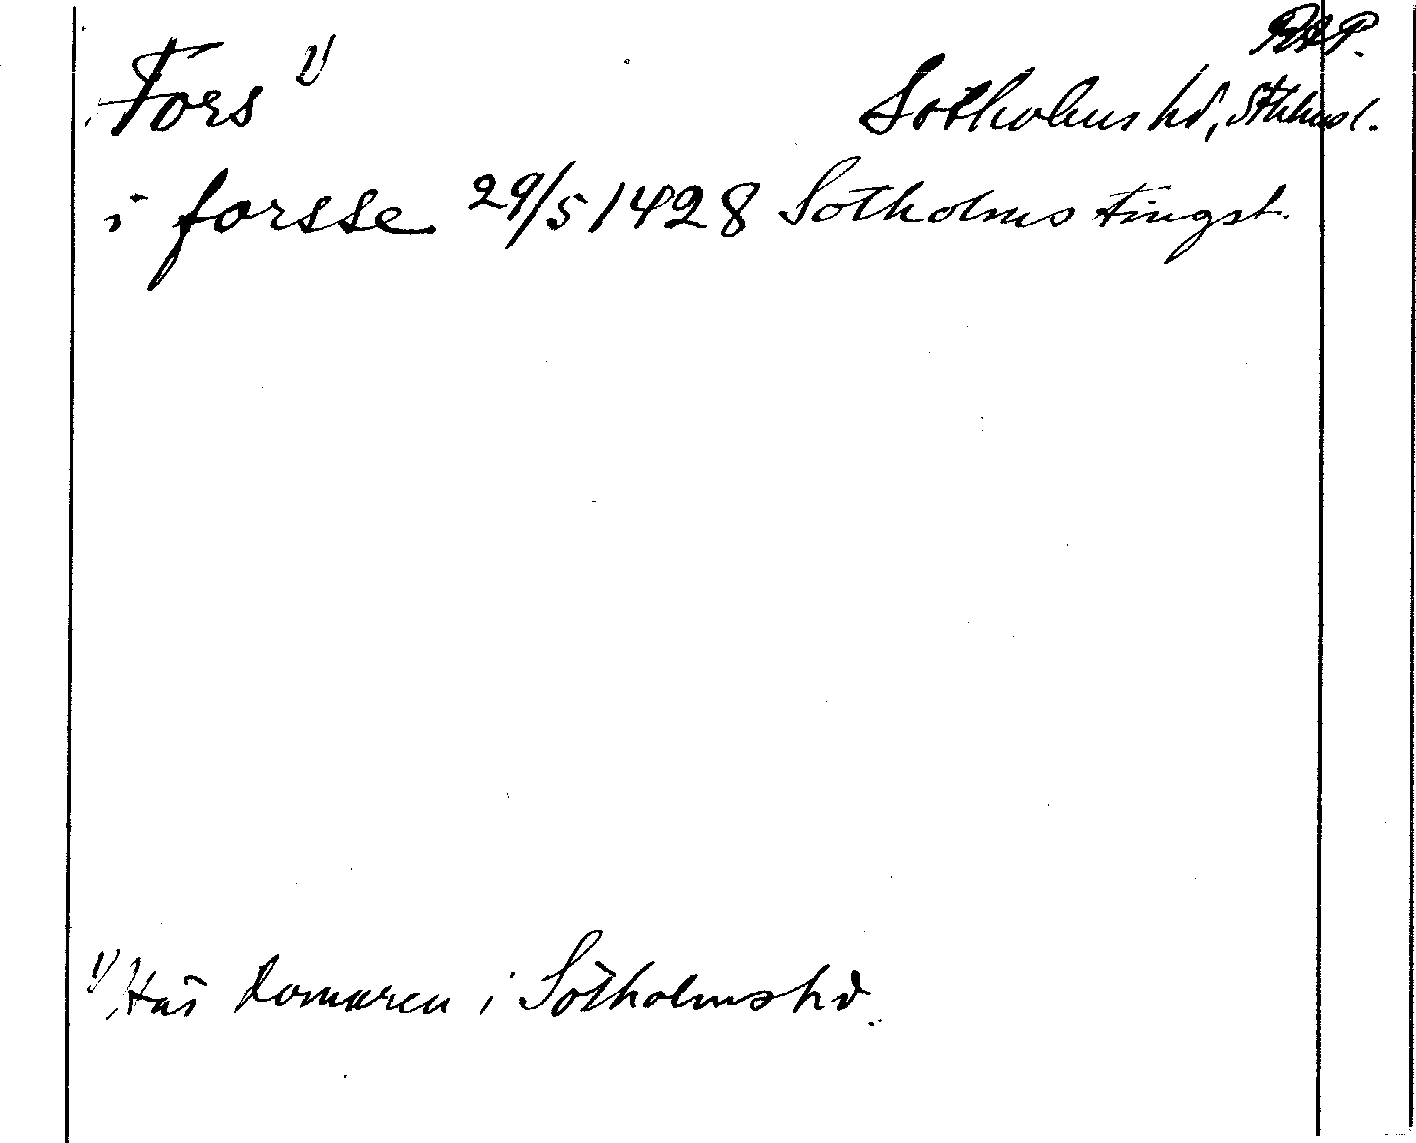 RAP.
Fors 1)
Sotholms hd, Sthlms l.
i forsse 29/5 1428 Sotholms tingst.
1) Häs domaren i Sotholms hd.